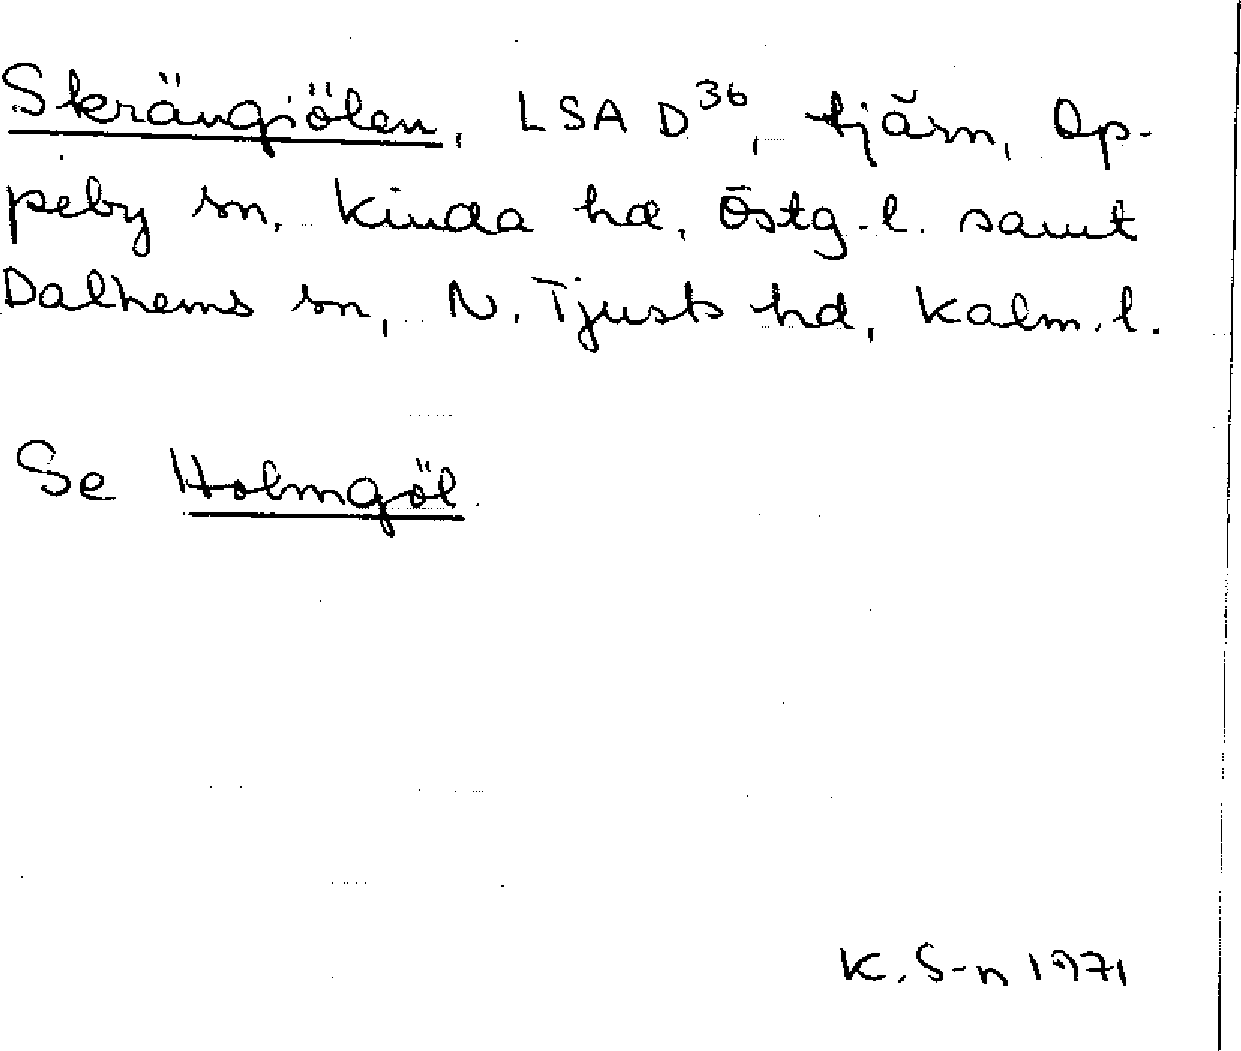 Skrängiölen, LSA D36, tjärn, Op-
peby sn, Kinda hd, Östg. l. samt
Dalhems sn, N. Tjusts hd, Kalm. l.
Se Holmgöl.
K. S-n 1971